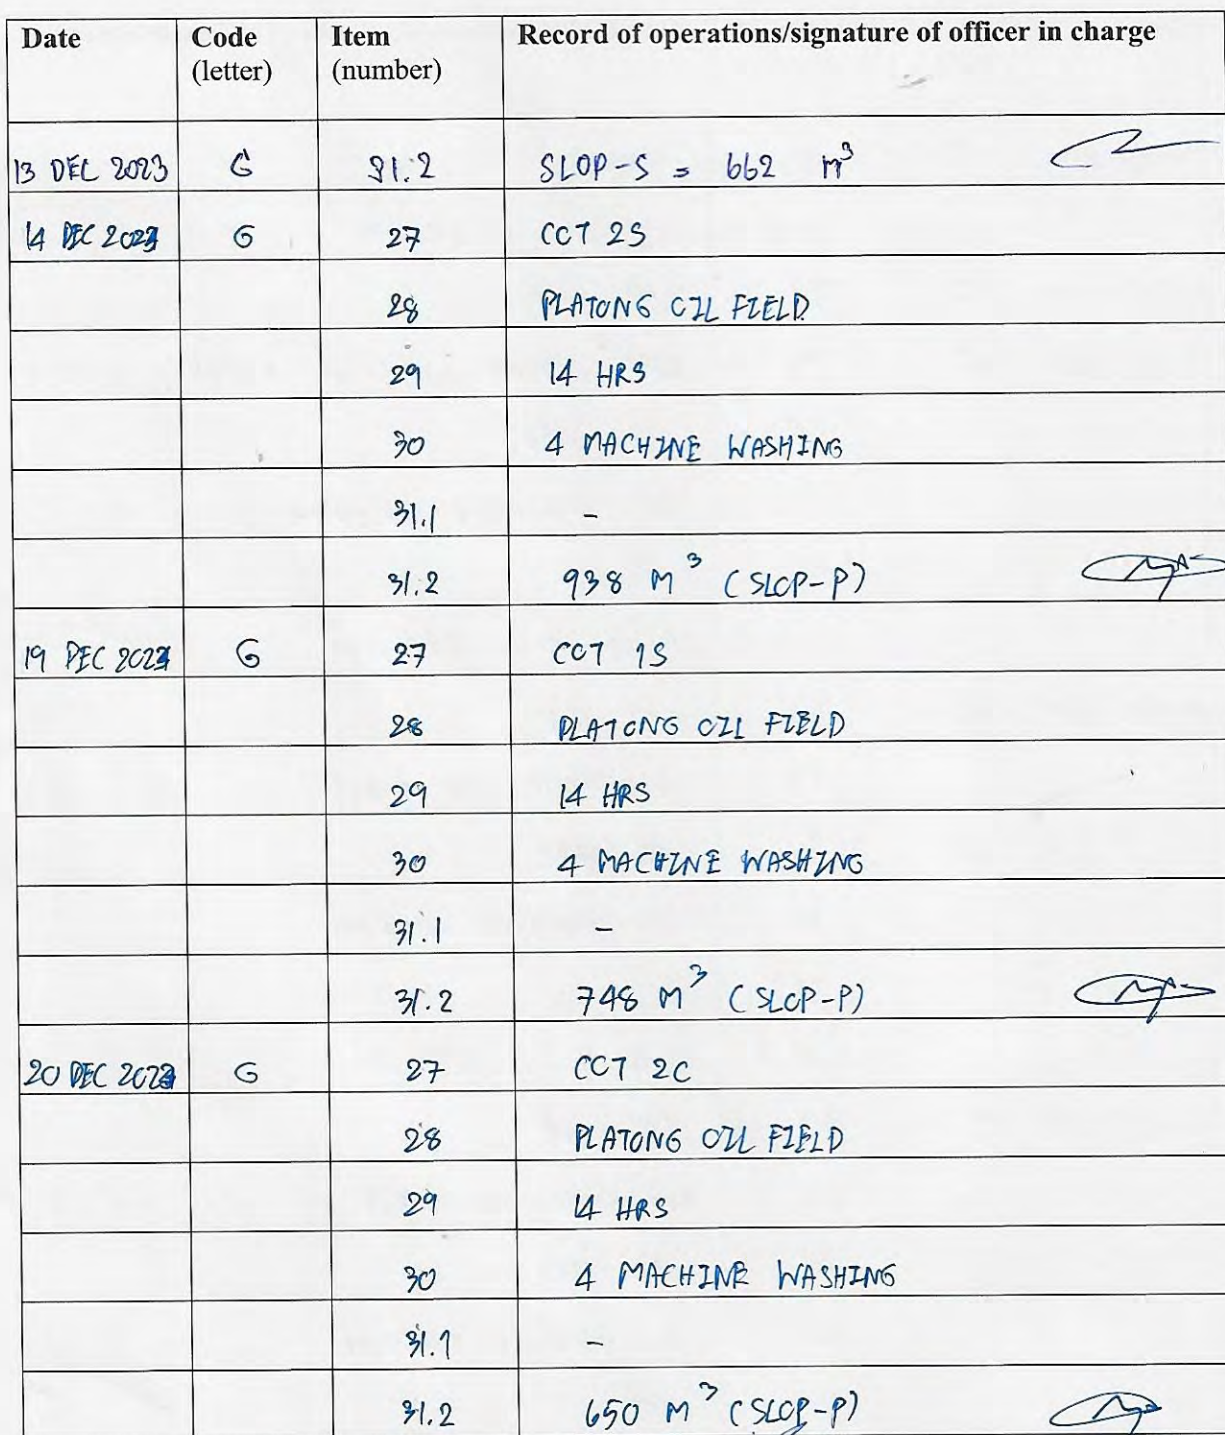 Date Code (letter) Item (number) Record of operations/signature of officer in charge
13 DEC 2023 G 31.2 SLOP-S = 662 m³
14 DEC 2023 G 27 COT 2S
28 PLATONG OIL FIELD
29 14 HRS
30 4 MACHINE WASHING
31.1 -
31.2 938 M³ (SLOP-P)
19 DEC 2023 G 27 COT 1S
28 PLATONG OIL FIELD
29 14 HRS
30 4 MACHINE WASHING
31.1 -
31.2 748 M³ (SLOP-P)
20 DEC 2023 G 27 COT 2C
28 PLATONG OIL FIELD
29 14 HRS
30 4 MACHINE WASHING
31.1 -
31.2 650 M³ (SLOP-P)